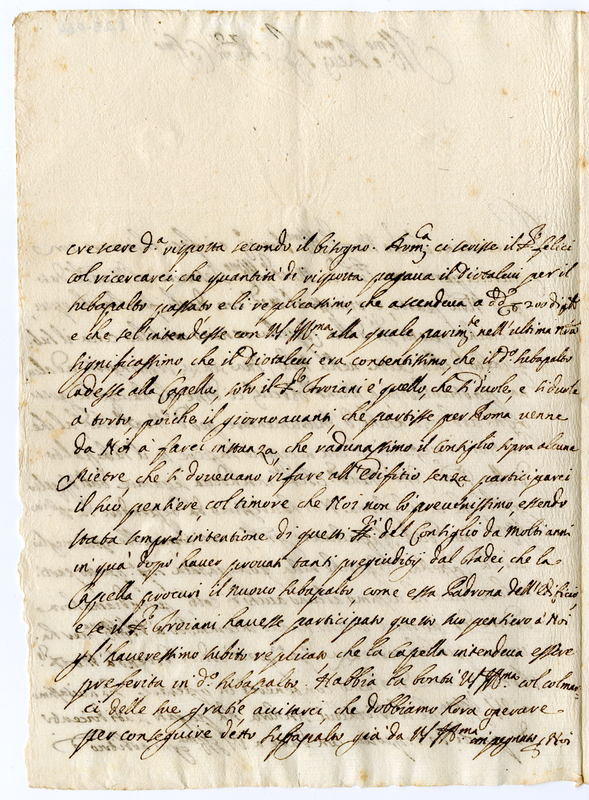 crescere d.ª risposta secondo il bisogno. ci scrisse il Sr. felici
col ricercarci che quantità di risposta pagava il Diotalevi per il
subapalto passato e li replicassimo, che ascendeva a 200 di
e che se l'intendesse con V.S. Ill.ma alla quale parim.te nell'ultima nostra
significassimo, che il Diotalevi era contentissimo, che il d.o subapalto
cadesse alla Cappella, solo il Sr. Troiani è quello, che si duole, e si duole
à torto poiche il giorno avanti, che partisse per Roma venne
da Noi à farci instanza, che radunassimo il Consiglio sopra alcune
Pietre che si dovevano rifare all'Edifitio senza participarci
il suo pensiere col timore che Noi non lo prevenissimo, essendo
stata sempre intentione di questi SS.ri del Consiglio da molti anni
in quà dopo haver provati tanti pregiuditij dal Tadei che la
Cappella procuri il nuovo subapalto come essa Padrona dell'Edificio
e se il Sr. Troiani havesse participato questo suo pensiero à Noi
gl'haveressimo subito replicato che la Capella intendeva essere
preferita in d.o subapalto. Habbia la bontà V.S. Ill.ma col colmar=
ci delle sue gratie avisarci, che dobbiamo hora operare
per conseguire detto subapalto già da V.S. Ill.ma impegnato, e Noi